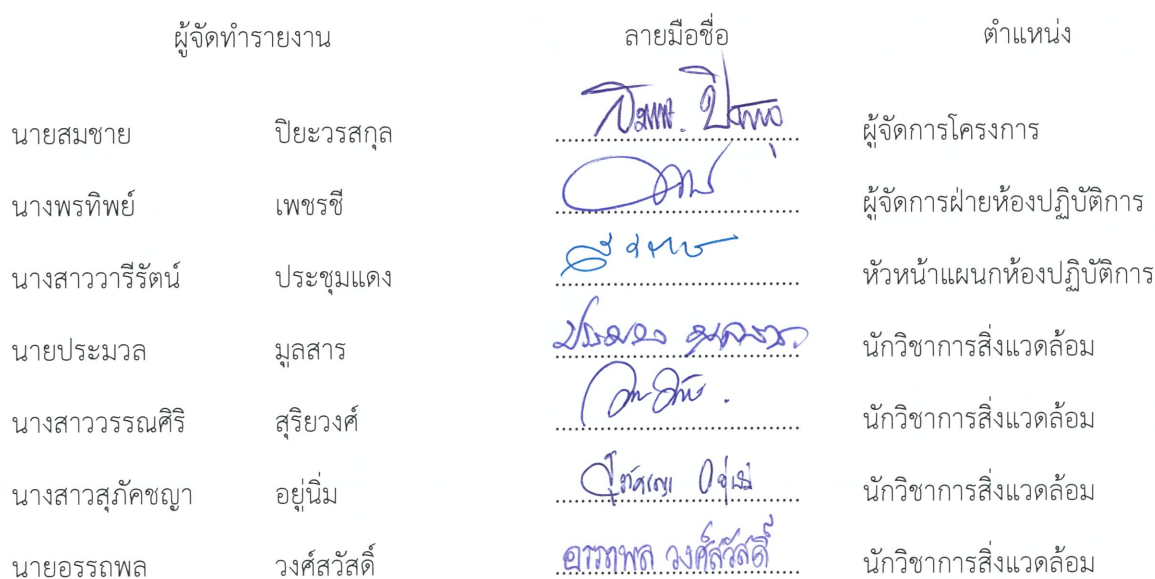 ผู้จัดทำรายงาน ลายมือชื่อ ตำแหน่ง
นายสมชาย ปิยะวรสกุล ผู้จัดการโครงการ
นางพรทิพย์ เพชรชี ผู้จัดการฝ่ายห้องปฏิบัติการ
นางสาววารีรัตน์ ประชุมแดง หัวหน้าแผนกห้องปฏิบัติการ
นายประมวล มูลสาร ประมวล มูลสาร นักวิชาการสิ่งแวดล้อม
นางสาววรรณศิริ สุริยวงศ์ นักวิชาการสิ่งแวดล้อม
นางสาวสุภัคชญา อยู่นิ่ม นักวิชาการสิ่งแวดล้อม
นายอรรถพล วงศ์สวัสดิ์ อรรถพล วงศ์สวัสดิ์ นักวิชาการสิ่งแวดล้อม